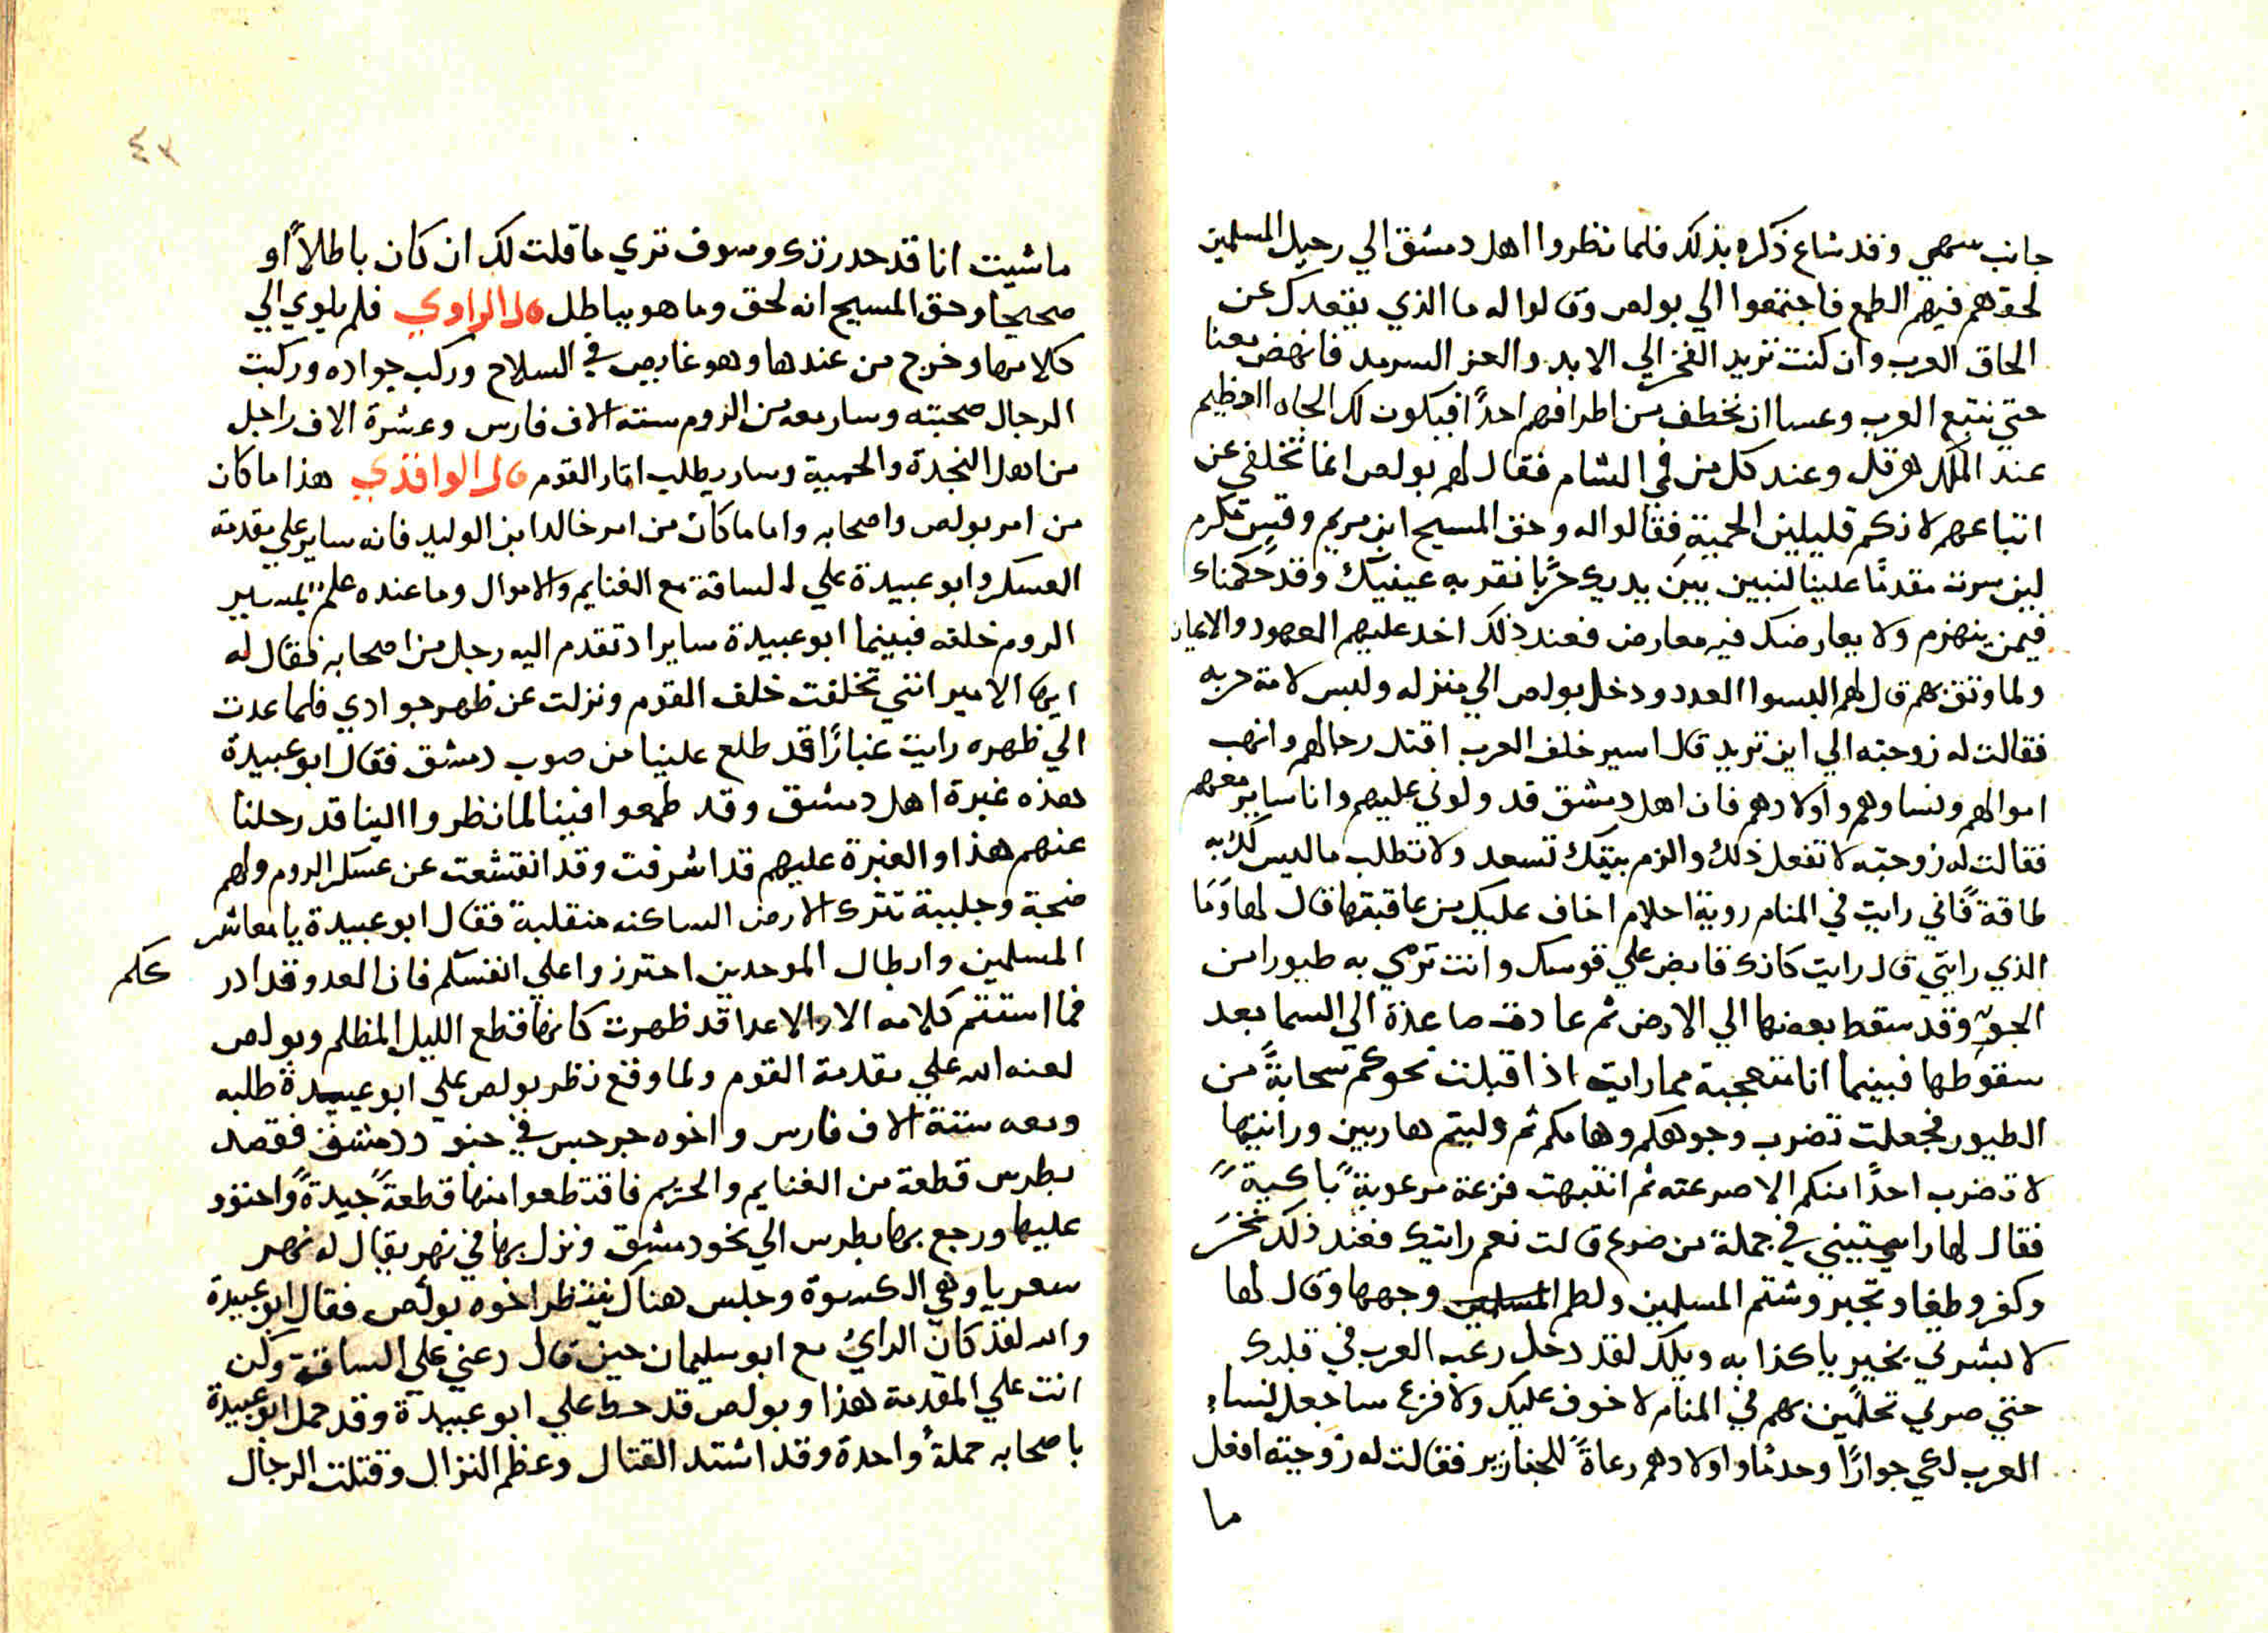 جانب سهمي وقد شاع ذكره بذلك فلما نظروا اهل دمشق الي رحيل المسلمين
لحقهم فيهم الطمع فاجتمعوا الي بولص وقالوا له ما الذي يقعدك عن
الحاق العرب وان كنت تريد الفخر الي الابد والعز السرمد فانهض معنا
حتي نتبع العرب وعسا ان نخطف من اطرافهم احدًا فيكون لك الجاه العظيم
عند الملك هرقل وعند كل من في الشام فقال لهم بولص انما تخلفي عن
اتباعهم لانكم قليلين الحمية فقالوا له وحق المسيح ابن مريم وقبين مكرم
لين سرت مقدمًا علينا لنبين بين يديك حربًا نقر به عينيك وقد حكمناك
فيمن ينهزم ولا يعارضك فيه معارض فعند ذلك اخد عليهم العهود والايمان
ولما وتق بهم قال لهم البسوا العدد ودخل بولص الي منزله ولبس لامة حربه
فقالت له زوجته الي اين تريد قال اسير خلف العرب اقتل رجالهم وانهب
اموالهم ونساوهم واولادهم فان اهل دمشق قد ولوني عليهم وانا ساير معهم
فقالت له زوجته لا تفعل ذلك والزم بيتك تسعد ولا تطلب ما ليس لك به
طاقة فاني رايت في المنام روية احلام اخاف عليك من عاقبتها قال لها وما
الذي رايتي قال رايت كانك قابض علي قوسك وانت ترمي به طيورا من
الجو وقد سقط بعضها الي الارض ثم عادت صاعدة الي السما بعد
سقوطها فبينما انا متعجبة مما رايت اذا قبلت نحوكم سحابةً من
الطيور فجعلت تضرب وجوهكم وهامكم ثم وليتم هاربين ورانيتها
لا تضرب احدًا منكم الا صرعته ثم انتبهت فزعة مرعوبةً باكيةً
فقال لها راىىتيني في جملة من صرع قالت نعم رايتك فعند ذلك نخر
وكفر وطغا وتجبر وشتم المسلمين ولطم المسلمين وجهها وقال لها
لا بشرتي بخير يا كذابه ويلك لقد دخل رعب العرب في قلبك
حتي صرتي تحلمين بهم في المنام لا خوف عليك ولا فزع ساجعل نساء
العرب لدعي جوارًا وخدمًا واولادهم رعاةً للخنازير فقالت له زوجته افعل
ما
٤٢
ما شيت انا قد حدرتك وسوف تري ما قلت لك ان كان باطلاً او
صحيحا وحق المسيح انه لحق وما هو بباطل قال الراوي فلم يلوي الي
كلامها وخرج من عندها وهو غايص في السلاح وركب جواده وركبت
الرجال صحبته وسار معه من الروم ستة الاف فارس وعشرة الاف راجل
من اهل النجدة والحمية وسار يطلب اتار القوم قال الواقدي هذا ما كان
من امر بولص واصحابه واما ما كان من امر خالد ابن الوليد فانه ساير علي مقدمة
العسكر وابو عبيدة علي الساقة مع الغنايم والاموال وما عنده علم بمسير
الروم خلفه فبينما ابو عبيدة سايرا د تقدم اليه رجل من اصحابه فقال له
ايها الامير انني تخلفت خلف القوم ونزلت عن ظهر جوادي فلما عدت
الي ظهره رايت غبارًا قد طلع علينا من صوب دمشق فقال ابو عبيدة
هذه غبرة اهل دمشق وقد طمعوا فينا لما نظروا الينا قد رحلنا
عنهم هذا والغبرة عليهم قد اشرفت وقد انقشعت عن عسكر الروم ولهم
ضجة وجلبية تترك الارض الساكنه منقلبة فقال ابو عبيدة يا معاشر
المسلمين وابطال الموحدين احترزوا علي انفسكم فان العدو قد ادر ككم
فما استتم كلامه الا والاعدا قد ظهرت كانها قطع الليل المظلم وبولص
لعنه الله علي مقدمة القوم ولما وقع نظر بولص علي ابو عبيدة طلبه
ومعه ستة الاف فارس واخوه جرجس في حنو دمشق فقصد
بطرس قطعة من الغنايم والحريم فاقتطعوا منها قطعةً جيدةً واحتوو
عليها ورجع بها بطرس الي نحو دمشق ونزل بها في نهر يقال له نهر
سعريا وهي الكسوة وجلس هناك ينتظر اخوه بولص فقال ابو عبيدة
والله لقد كان الراي مع ابو سليمان حين قال دعني علي الساقة وكن
انت علي المقدمة هذا وبولص قد حط علي ابو عبيدة وقد حمل ابو عبيدة
باصحابه حملةً واحدة وقد اشتد القتال وعظم النزال وقتلت الرجال